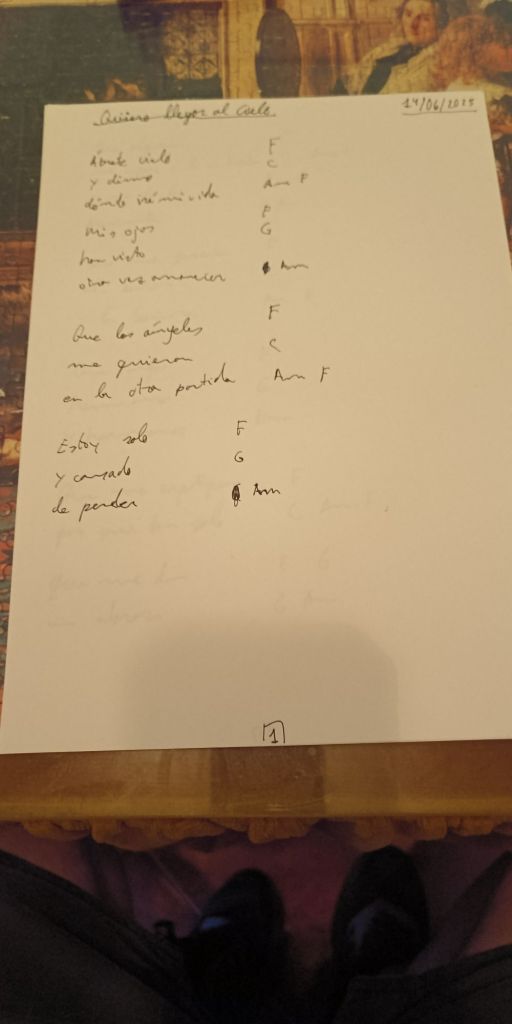 Quiero llegar al cielo. 14/06/2025
Ábrete cielo F
y dime C
dónde irá mi vida Am F
Mis ojos F
han visto G
otra vez amanecer Am
Que los ángeles F
me quieran C
en la otra partida Am F
Estoy solo F
y cansado G
de perder Am
1